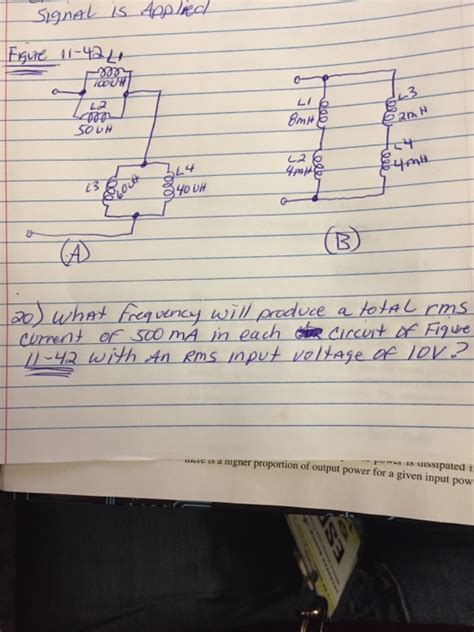 Signal is Applied
Figure 11-42
L1
100UH
L2
50UH
L3
60UH
L4
40UH
(A)
L1
8mH
L2
4mH
L3
2mH
L4
4mH
(B)
20) What Frequency will produce a total rms
current of 500 mA in each circuit of Figure
11-42 with An Rms input voltage of 10V?
is dissipated i
there is a higher proportion of output power for a given input pow
ES